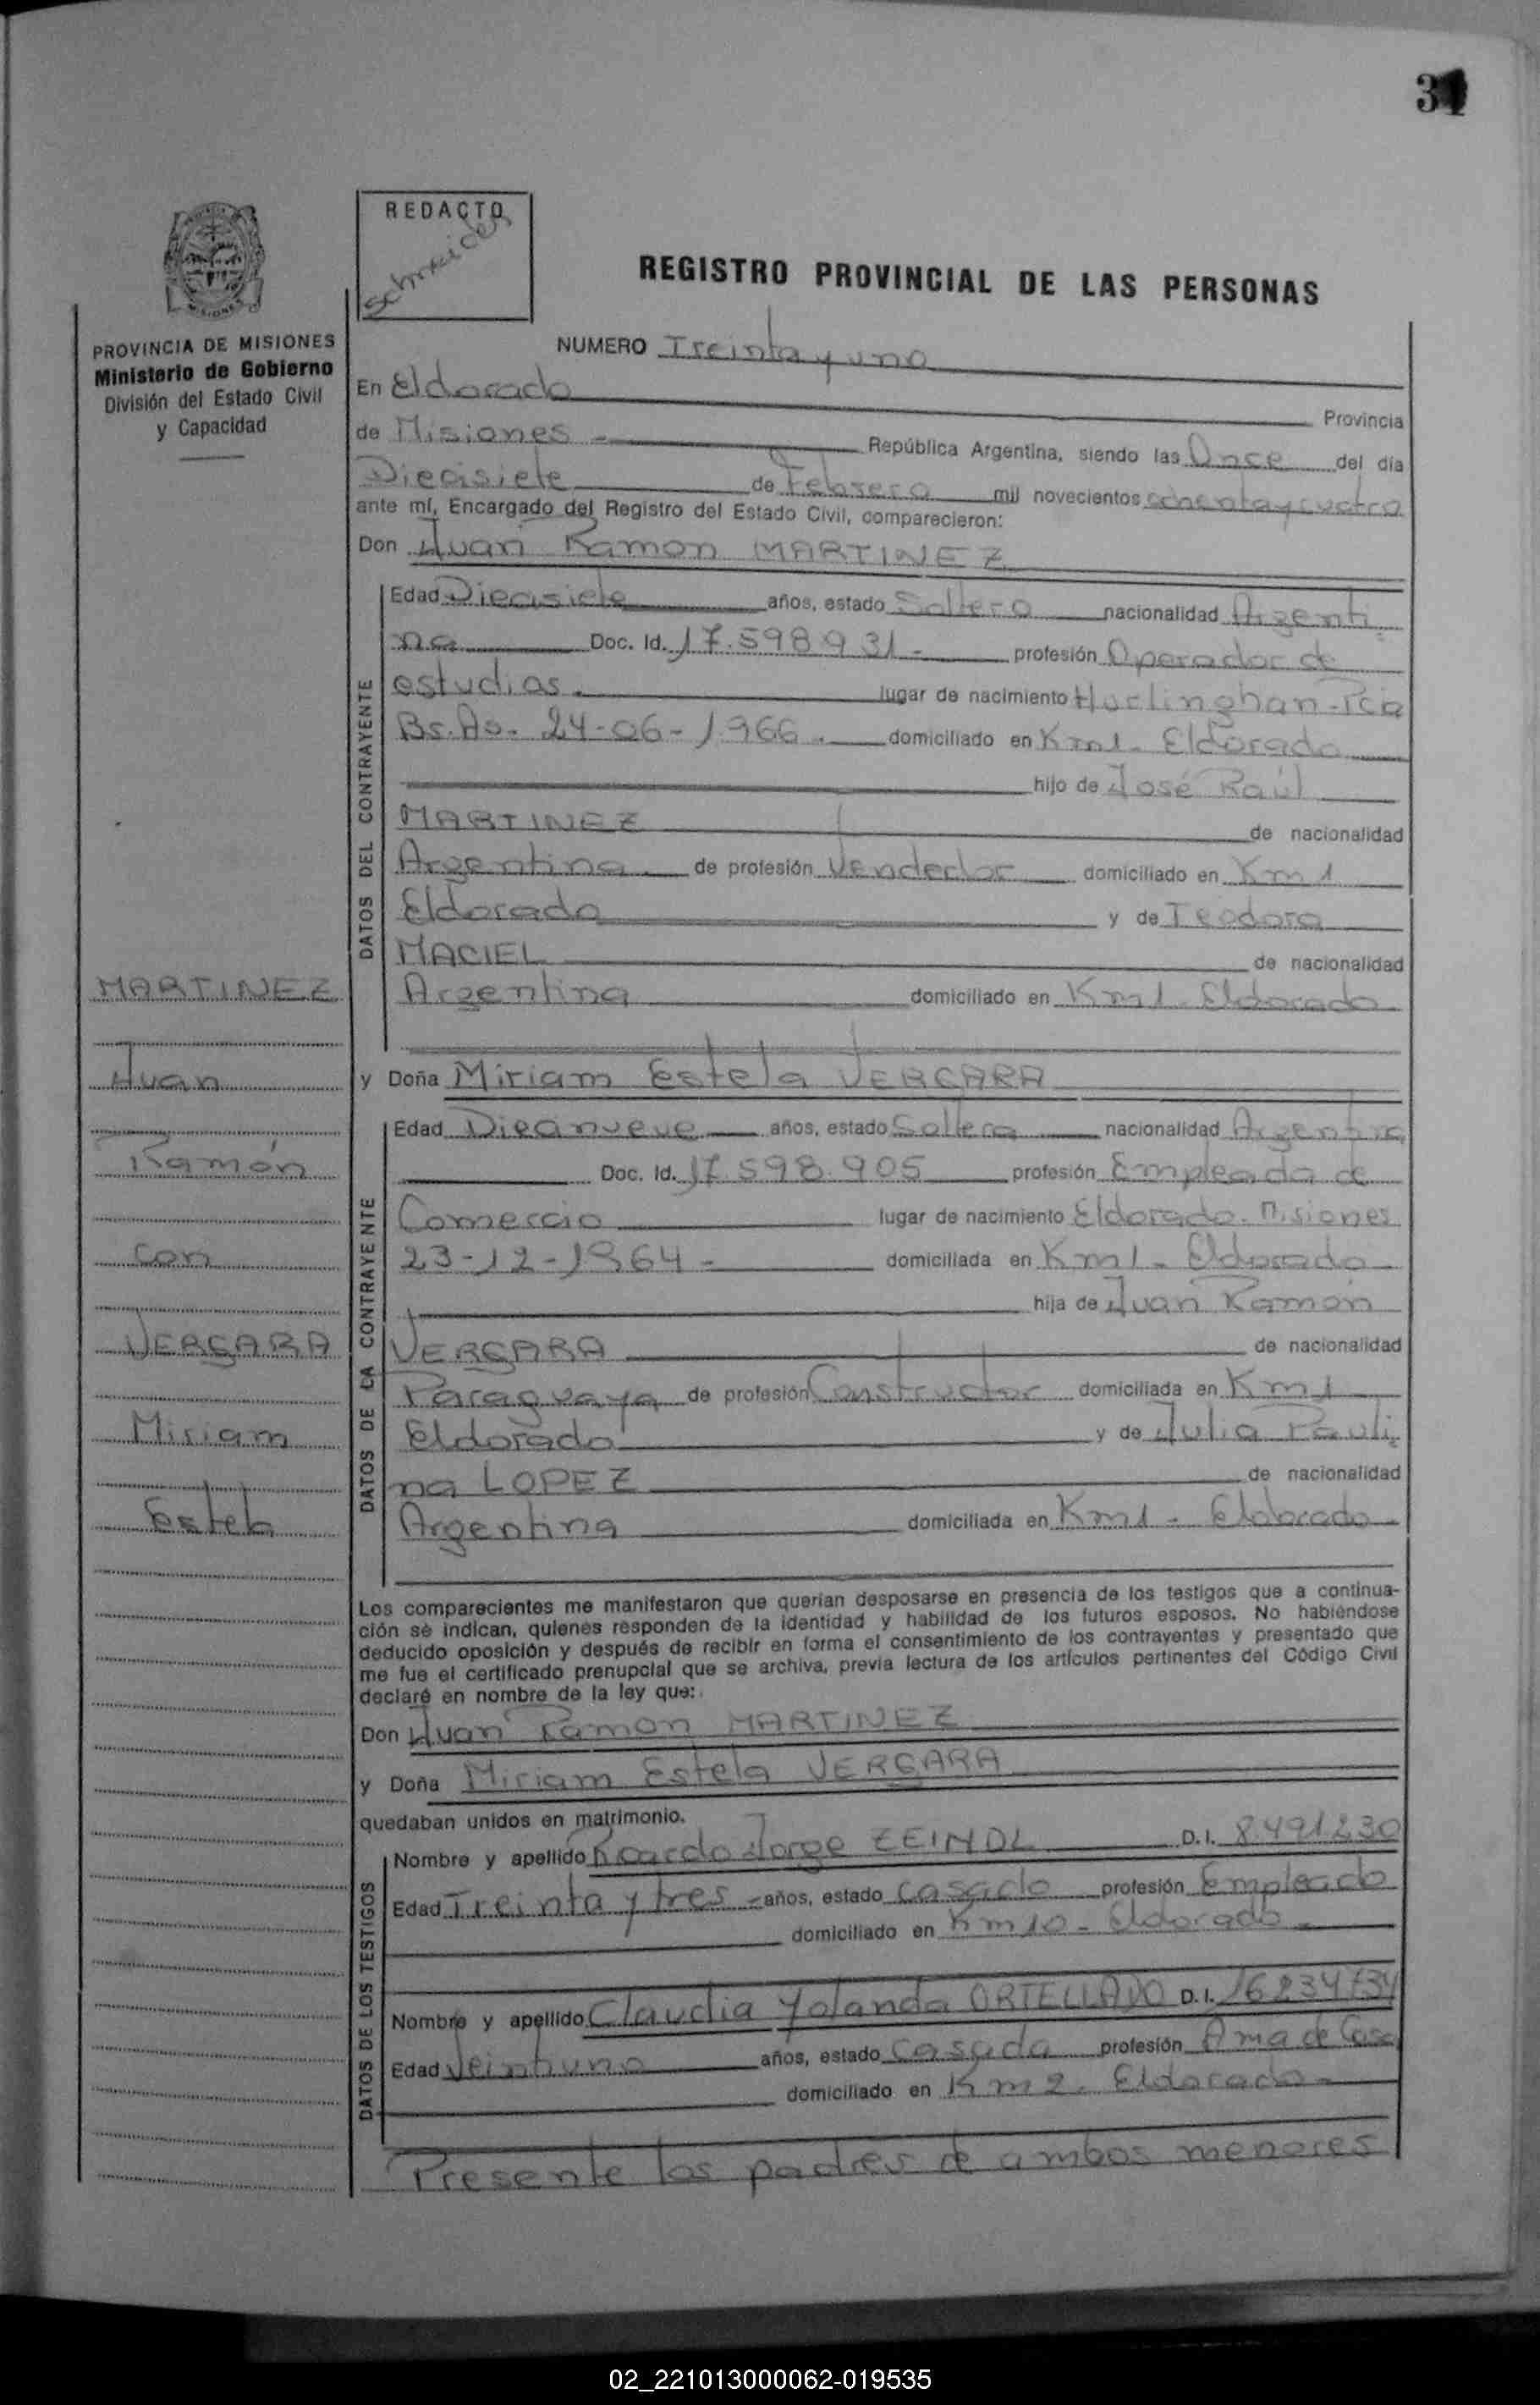 31
REDACTO
Schneider
REGISTRO PROVINCIAL DE LAS PERSONAS
MISIONES
PROVINCIA DE MISIONES
Ministerio de Gobierno
División del Estado Civil
y Capacidad
NUMERO Treinta y uno
En Eldorado Provincia
de Misiones - República Argentina, siendo las Once del día
Diecisiete de Febrero mil novecientos ochenta y cuatro
ante mí, Encargado del Registro del Estado Civil, comparecieron:
Don Juan Ramon MARTINEZ
DATOS DEL CONTRAYENTE
Edad Diecisiete años, estado Soltero nacionalidad Argenti
na Doc. Id. 17.598.931.- profesión Operador de
estudios. lugar de nacimiento Hurlinghan-Pcia
Bs.As. 24-06-1966. domiciliado en Km1- Eldorado
hijo de José Raúl
MARTINEZ de nacionalidad
Argentina de profesión Vendedor domiciliado en Km 1
Eldorado y de Teodora
MACIEL de nacionalidad
Argentina domiciliado en Km1- Eldorado
y Doña Miriam Estela VERGARA
DATOS DE LA CONTRAYENTE
Edad Diecinueve años, estado Soltera nacionalidad Argentina
Doc. Id. 17.598.905 profesión Empleada de
Comercio lugar de nacimiento Eldorado-Misiones
23-12-1964- domiciliada en Km1- Eldorado-
hija de Juan Ramón
VERGARA de nacionalidad
Paraguaya de profesión Constructor domiciliada en Km1
Eldorado y de Julia Pauli
na LOPEZ de nacionalidad
Argentina domiciliada en Km1- Eldorado-
MARTINEZ
Juan
Ramón
con
VERGARA
Miriam
Estela
Los comparecientes me manifestaron que querían desposarse en presencia de los testigos que a continua-
ción se indican, quienes responden de la identidad y habilidad de los futuros esposos. No habiéndose
deducido oposición y después de recibir en forma el consentimiento de los contrayentes y presentado que
me fue el certificado prenupcial que se archiva, previa lectura de los artículos pertinentes del Código Civil
declaré en nombre de la ley que:
Don Juan Ramon MARTINEZ
y Doña Miriam Estela VERGARA
quedaban unidos en matrimonio.
DATOS DE LOS TESTIGOS
Nombre y apellido Ricardo Jorge ZEINDL D.I. 8.491.230
Edad Treinta y tres - años, estado casado profesión Empleado
domiciliado en Km 10- Eldorado-
Nombre y apellido Claudia Yolanda ORTELLADO D.I. 16234734
Edad Veintiuno años, estado casada profesión Ama de Casa
domiciliado en Km 2. Eldorado-
Presente los padres de ambos menores
02_221013000062-019535